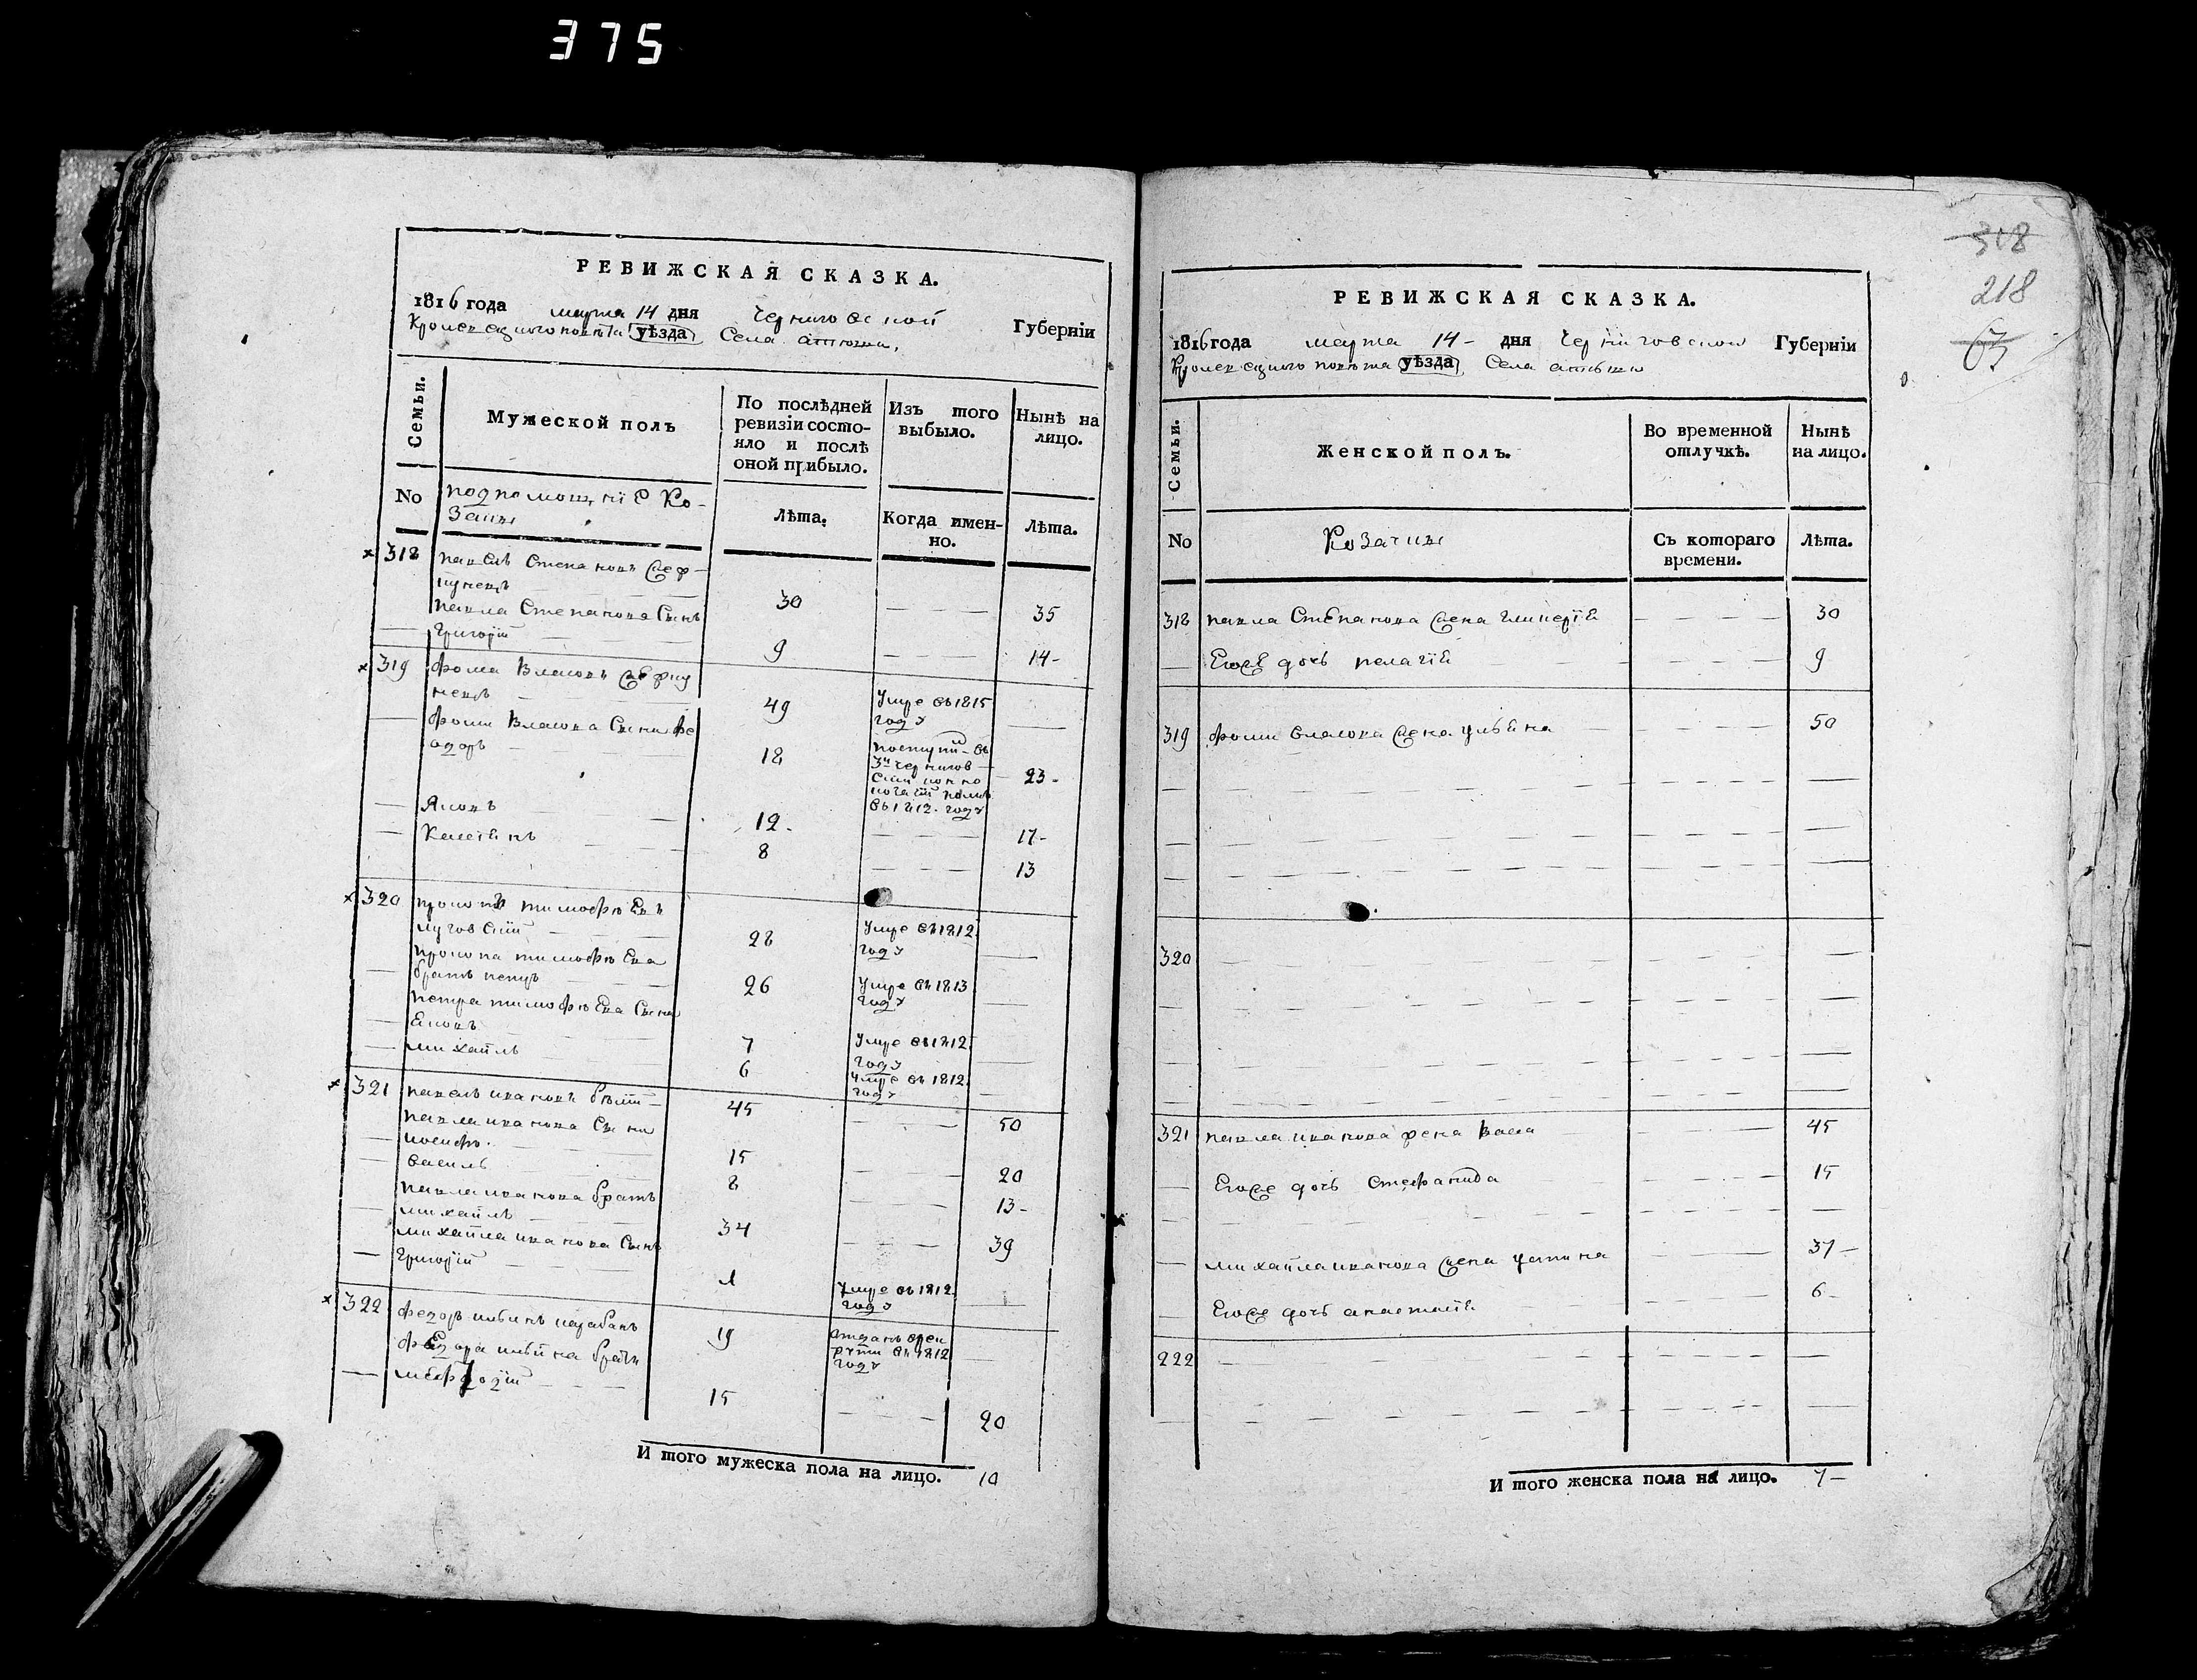 375
РЕВИЖСКАЯ СКАЗКА.
1816 года марта 14 дня Черниговской Губернїи
Кролевецкого повѣта уѣзда Села
Семьи.
Мужеской полъ
По послѣдней ревизїи состо-
яло и послѣ
оной прибыло.
Изъ того
выбыло.
Нынѣ на
лицо.
No
подпомощнїе Ко-
заки
Лѣта.
Когда имен-
но.
Лѣта.
318 павелъ Степановъ
30 35
павла Степанова Сынъ
Григорїй 9 14
319 фома Власовъ
49 Умре въ 1815
году
фоми Власова Сыни фе
одоръ 18 23
въ 1812 году
Яковъ 12 17
8 13
320 тимофѣевъ
28 Умре въ 1812
году
тимофѣева
братъ петръ 26 Умре въ 1813
году
петра тимофѣева Сыни
7 Умре въ 1812
году
михайлъ 6 Умре въ 1812
году
321 павелъ ивановъ
45 50
павла иванова Сыни
иосифъ 15 20
василь 8 13
павла иванова братъ
михайлъ 34 39
михайла иванова Сынъ
Григорїй 1 Умре въ 1812
году
322 федоръ
19 отданъ врек
рути въ 1812
году
федора братъ
15 20
И того мужеска пола на лицо. 10
318
218
63
РЕВИЖСКАЯ СКАЗКА.
1816 года марта 14 дня Черниговской Губернїи
Кролевецкого повѣта уѣзда Села
Семьи.
Женской полъ.
Во временной
отлучкѣ.
Нынѣ
на лицо.
No
Козачки
Съ котораго
времени.
Лѣта.
318 павла Степанова жена гликерїя 30
Егоже дочь пелагїя 9
319 фоми власова жена улияна 50
320
321 павла иванова жена Васса 45
Егоже дочь Стефанида 15
михайла иванова жена устина 37
Егоже дочь анастасїя 6
222
И того женска пола на лицо. 7